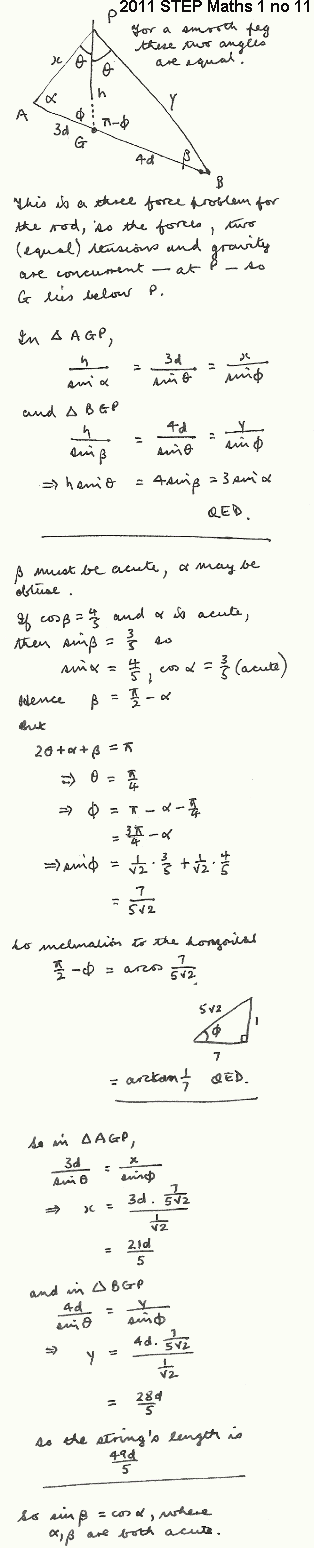 2011 STEP Maths 1 no 11
P
For a smooth peg
these two angles
are equal.
x
θ
θ
h
y
A
α
φ
π-φ
3d
G
4d
β
B
This is a three force problem for
the rod, so the forces, two
(equal) tensions and gravity
are concurrent — at P — so
G lies below P.
In Δ AGP,
h/sin α = 3d/sin θ = x/sin φ
and Δ BGP
h/sin β = 4d/sin θ = y/sin φ
⇒ h sin θ = 4 sin β = 3 sin α
QED.
β must be acute, α may be
obtuse.
If cos β = 4/5 and α is acute,
then sin β = 3/5 so
sin α = 4/5, cos α = 3/5 (acute)
Hence β = π/2 - α
but
2θ + α + β = π
⇒ θ = π/4
⇒ φ = π - α - π/4
= 3π/4 - α
⇒ sin φ = 1/√2 . 3/5 + 1/√2 . 4/5
= 7/5√2
So inclination to the horizontal
π/2 - φ = arcos 7/5√2
5√2
1
φ
7
= arctan 1/7 QED.
So in Δ AGP,
3d/sin θ = x/sin φ
⇒ x = 3d . 7/5√2 / 1/√2
= 21d/5
and in Δ BGP
4d/sin θ = y/sin φ
⇒ y = 4d . 7/5√2 / 1/√2
= 28d/5
so the string's length is
49d/5
So sin β = cos α, where
α, β are both acute.